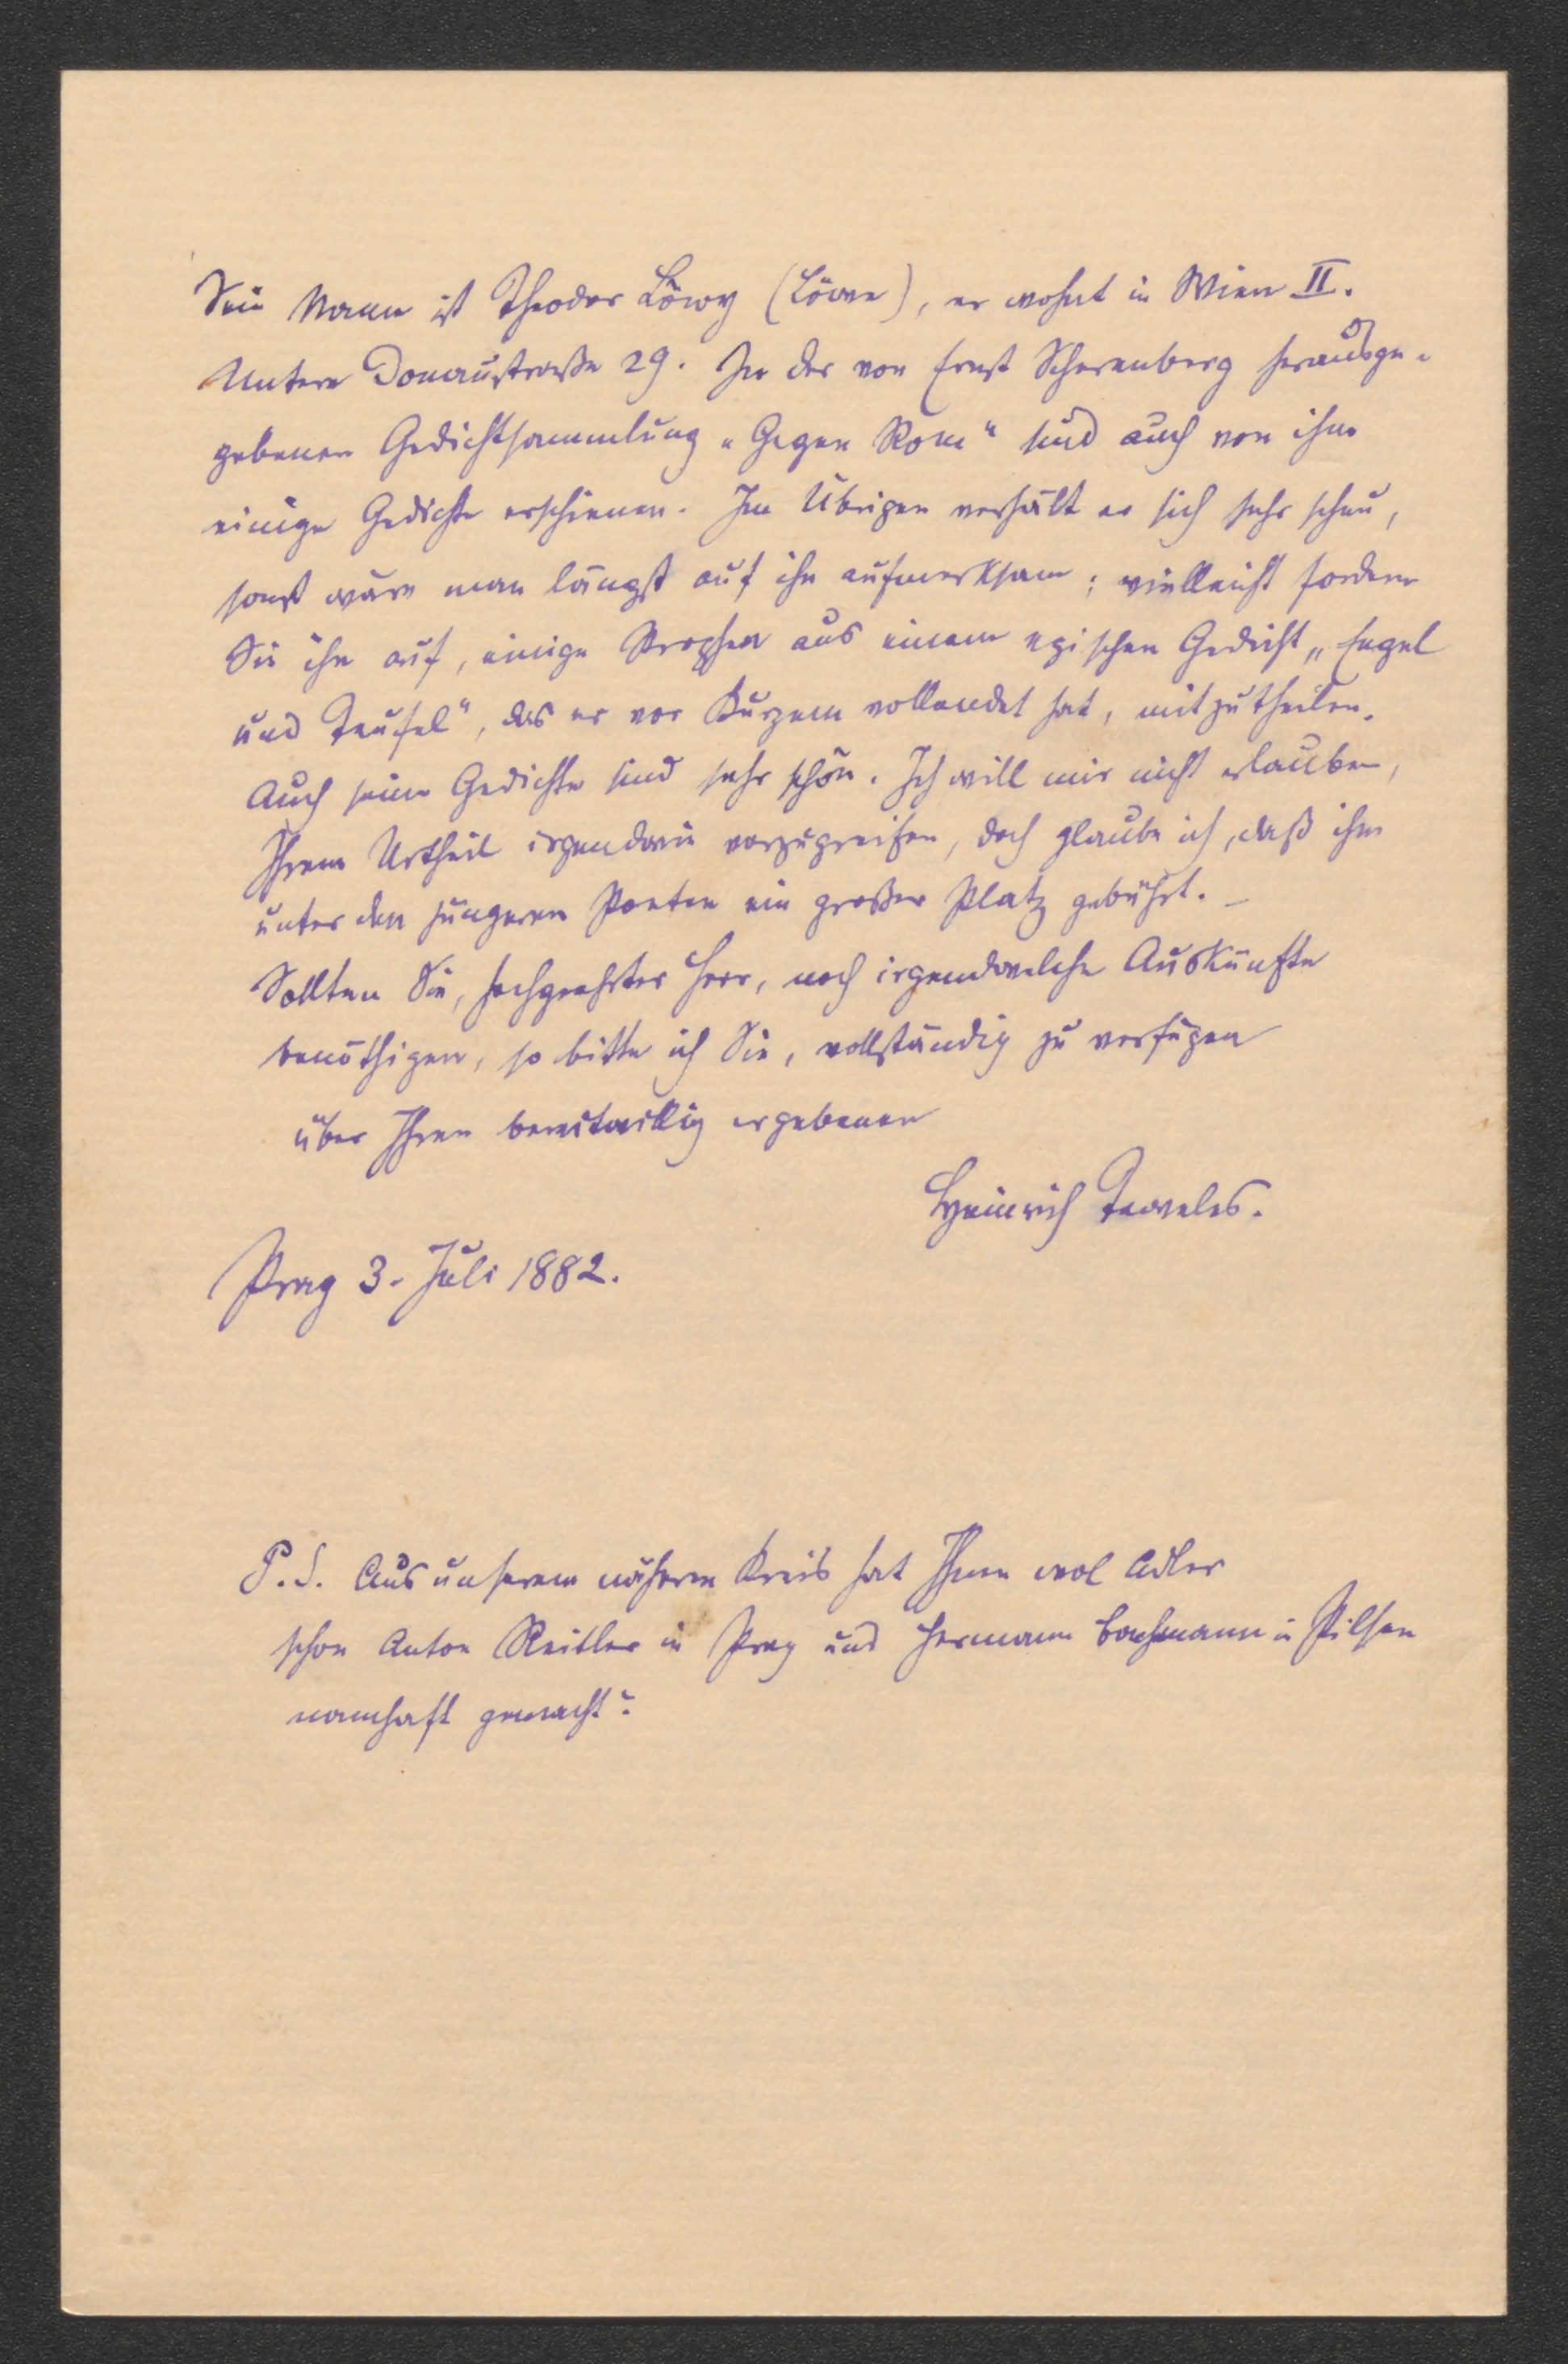 Sein Name ist Theodor Löwy (Löwe), er wohnt in Wien II.
Untere Donaustraße 29. In der von Ernst Scherenberg herausge-
gebenen Gedichtsammlung „Gegen Rom“ sind auch von ihm
einige Gedichte erschienen. Im Übrigen verhält er sich sehr scheu,
sonst wäre man längst auf ihn aufmerksam; vielleicht fordern
Sie ihn auf, einige Strophen aus einem epischen Gedicht „Engel
und Teufel“, das er vor Kurzem vollendet hat, mitzutheilen.
Auch seine Gedichte sind sehr schön. Ich will mir nicht erlauben,
Ihrem Urtheil irgendwie vorzugreifen, doch glaube ich, daß ihm
unter den jüngeren Poeten ein großer Platz gebührt. –
Sollten Sie, hochgeehrter Herr, noch irgendwelche Auskünfte
benöthigen, so bitte ich Sie, vollständig zu verfügen
über Ihren bereitwillig ergebenen
Heinrich Teweles.
Prag 3. Juli 1882.
P.S. Aus unserem näheren Kreis hat Ihnen wol Adler
schon Anton Reitler in Prag und Hermann Bachmann in Pilsen
namhaft gemacht?